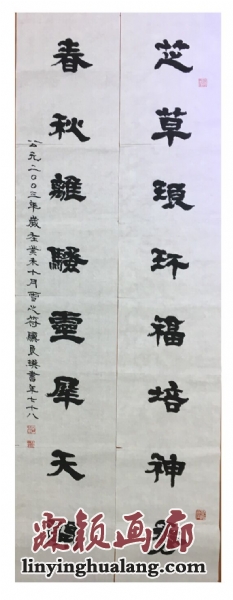 芝草琅玕福培神
春秋離騷靈犀天
公元二〇〇三年歲在癸未十月雪之符驥良撰書年七十八
霖颖画廊
linyinghualang.com